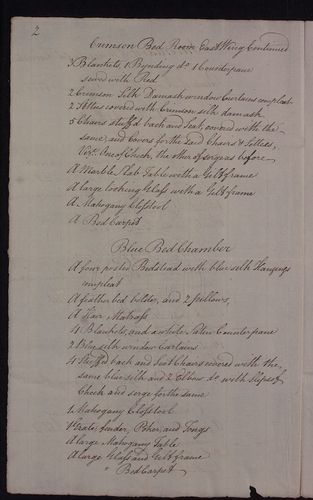 2
Crimson Bed Room East Wing Continued
3 Blankets 1 Bynding do. 1 Counterpane
sewed with Red
2 Crimson Silk Damask window Curtains compleat
2 Settees covered with Crimson silk damask
5 Chairs stuffed back and Seat, covered with the
same, and Covers for the said Chairs & Settees,
Vizt. One of Check, the other of serge as before
A Marble Slab Table with a Gelt frame
A large looking Glass with a Gelt frame
A Mahogany Closstool
A Bed Carpet
Blue Bed Chamber
A four posted Bedstead with blue silk Hangings
compleat
A feather bed bolster, and 2 pillows,
A Hair Matrass
4 Blankets, and a white Counterpane
2 Blue silk window Curtains
4 Stuffed back and Seat Chairs covered with the
same blue silk and 2 Elbow do. with slips of
Check and serge for the same
1 Mahogany Closstool
1 Grate, fender, Poker, and Tongs
A large Mahogany Table
A large Glass and Gelt frame
" Bed Carpet